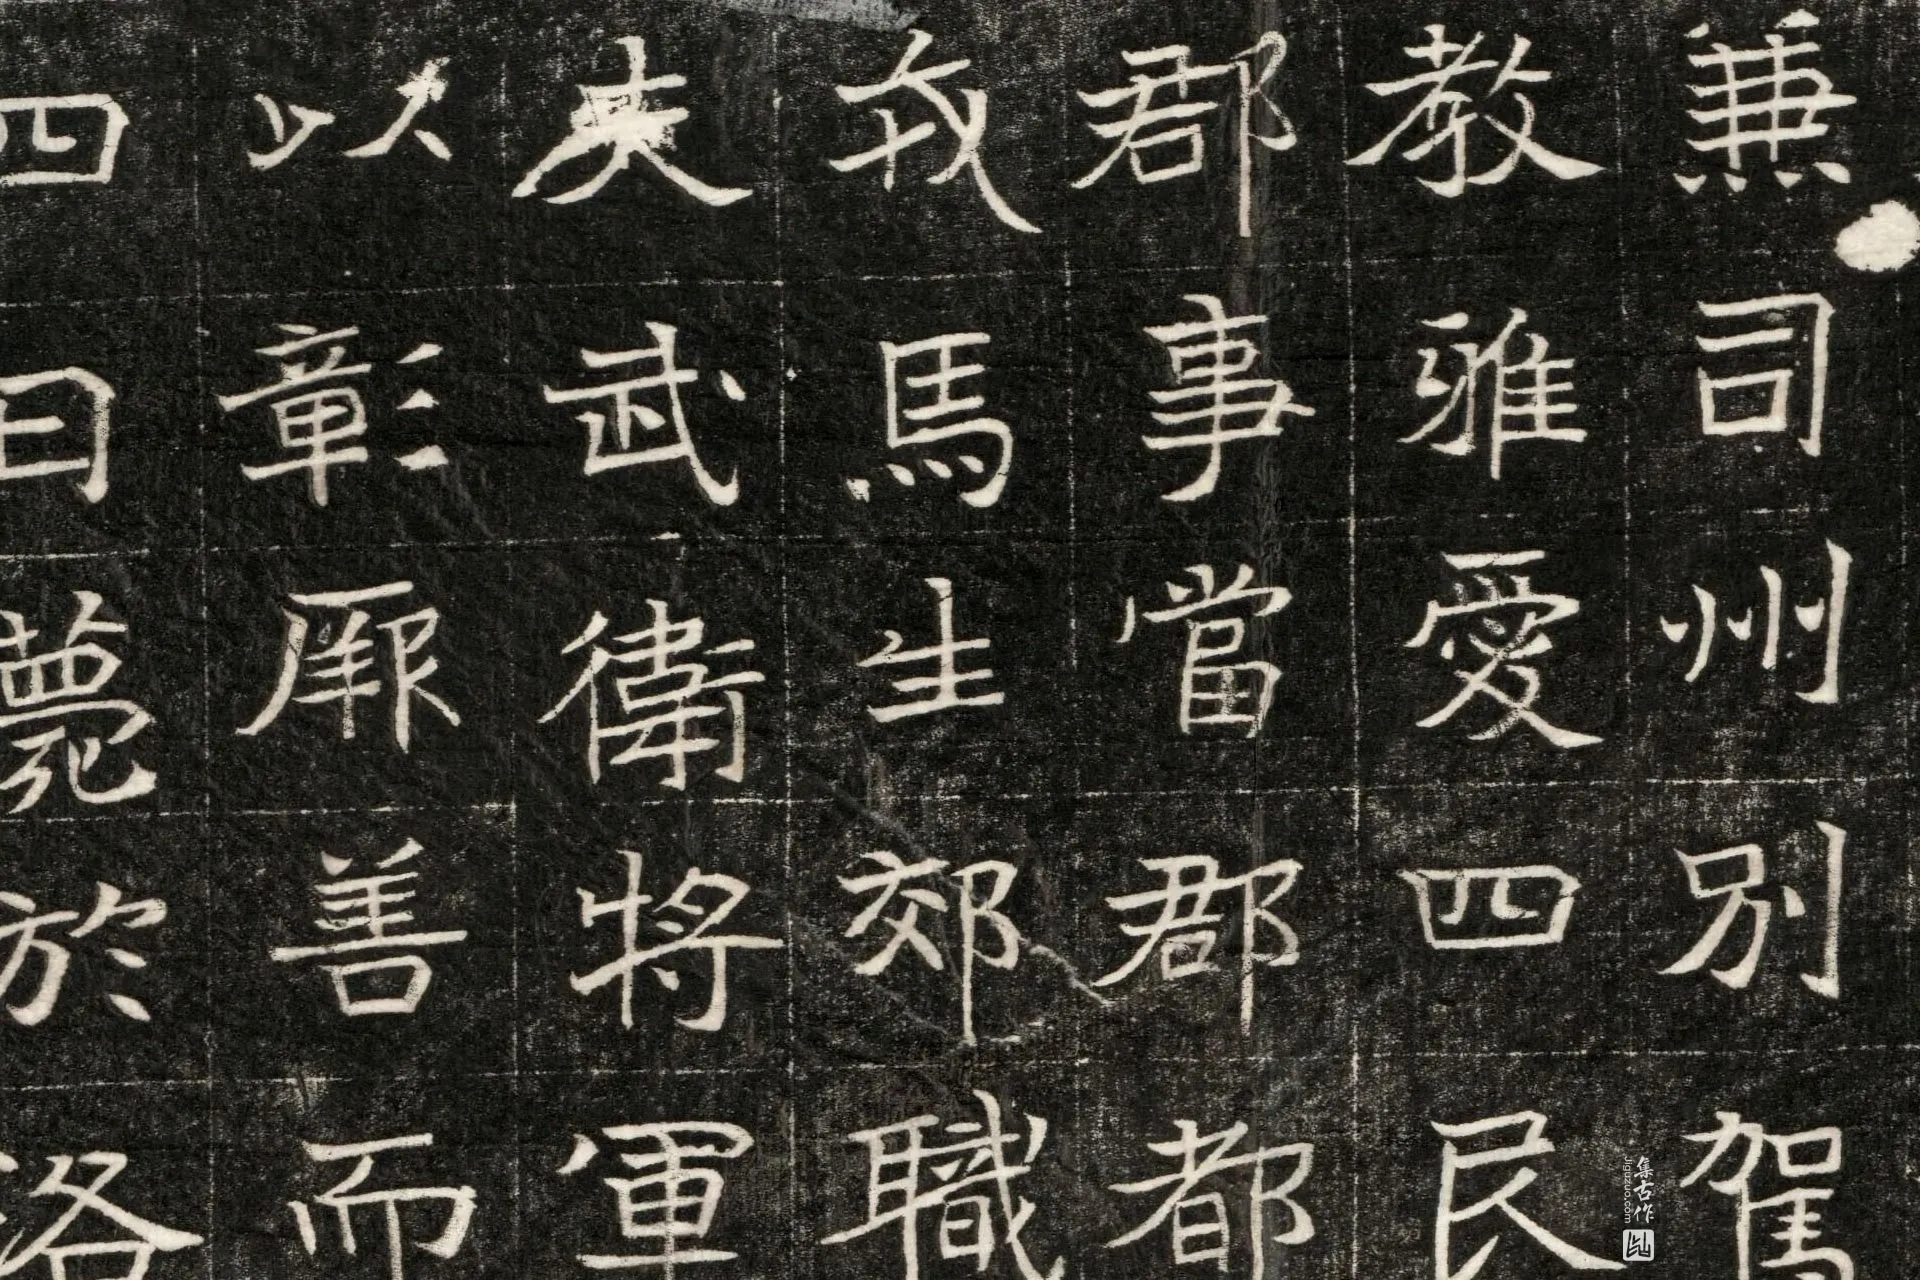 兼司州別駕
教雅愛四民
郡事當郡都
戎馬生郊職
夫武衛將軍
以彰厥善而
四日薨於洛
集古作
Jiguzuo.com